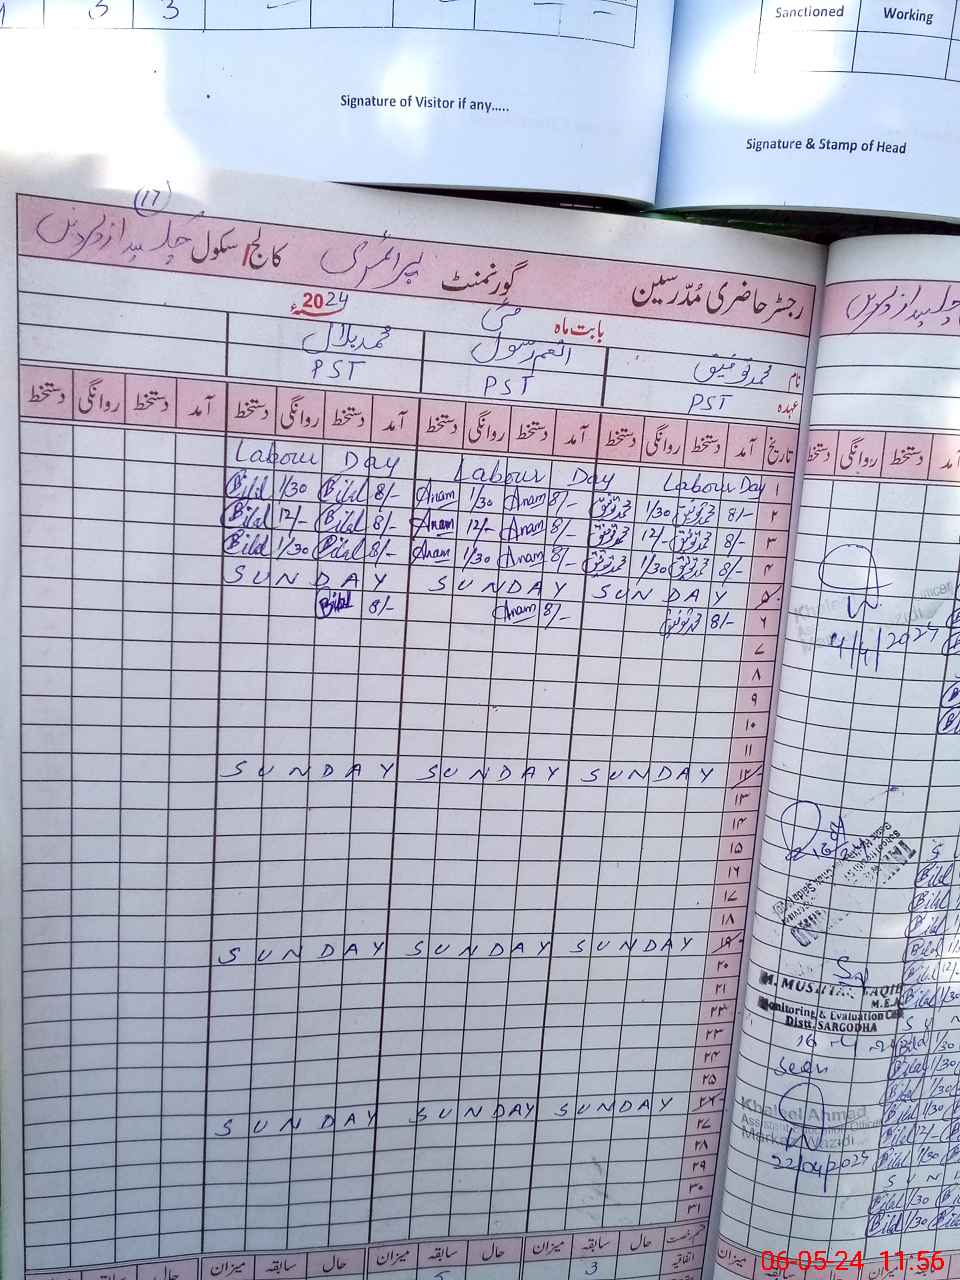 Sanctioned Working
Signature of Visitor if any.....
Signature & Stamp of Head
(17)
رجسٹر حاضری مُدرّسین گورنمنٹ پرائمری کالج/سکول
بابت ماہ مئی 2024ء
نام محمد توفیق انعم رسول محمد بلال
عہدہ PST PST PST
تاریخ آمد دستخط روانگی دستخط آمد دستخط روانگی دستخط آمد دستخط روانگی دستخط آمد دستخط روانگی دستخط
۱ Labour Day Labour Day Labour Day
۲ 8/- محمد توفیق 1/30 محمد توفیق 8/- Anam 1/30 Anam 8/- Bilal 1/30 Bilal
۳ 8/- محمد توفیق 12/- محمد توفیق 8/- Anam 12/- Anam 8/- Bilal 12/- Bilal
۴ 8/- محمد توفیق 1/30 محمد توفیق 8/- Anam 1/30 Anam 8/- Bilal 1/30 Bilal
۵ SUNDAY SUNDAY SUNDAY
۶ 8/- محمد توفیق 8/- Anam 8/- Bilal
۷
۸
۹
۱۰
۱۱
۱۲ SUNDAY SUNDAY SUNDAY
۱۳
۱۴
۱۵
۱۶
۱۷
۱۸
۱۹ SUNDAY SUNDAY SUNDAY
۲۰
۲۱
۲۲
۲۳
۲۴
۲۵
۲۶ SUNDAY SUNDAY SUNDAY
۲۷
۲۸
۲۹
۳۰
۳۱
اتفاقیہ سابقہ حال میزان سابقہ حال میزان سابقہ حال میزان
3
دستخط روانگی دستخط آمد
M. MUSHTAQ SAQIB
M.E.A
Monitoring & Evaluation Cell
Distt. SARGODHA
Seen
Khaleel Ahmad
22/04/2024
06-05-24 11:56